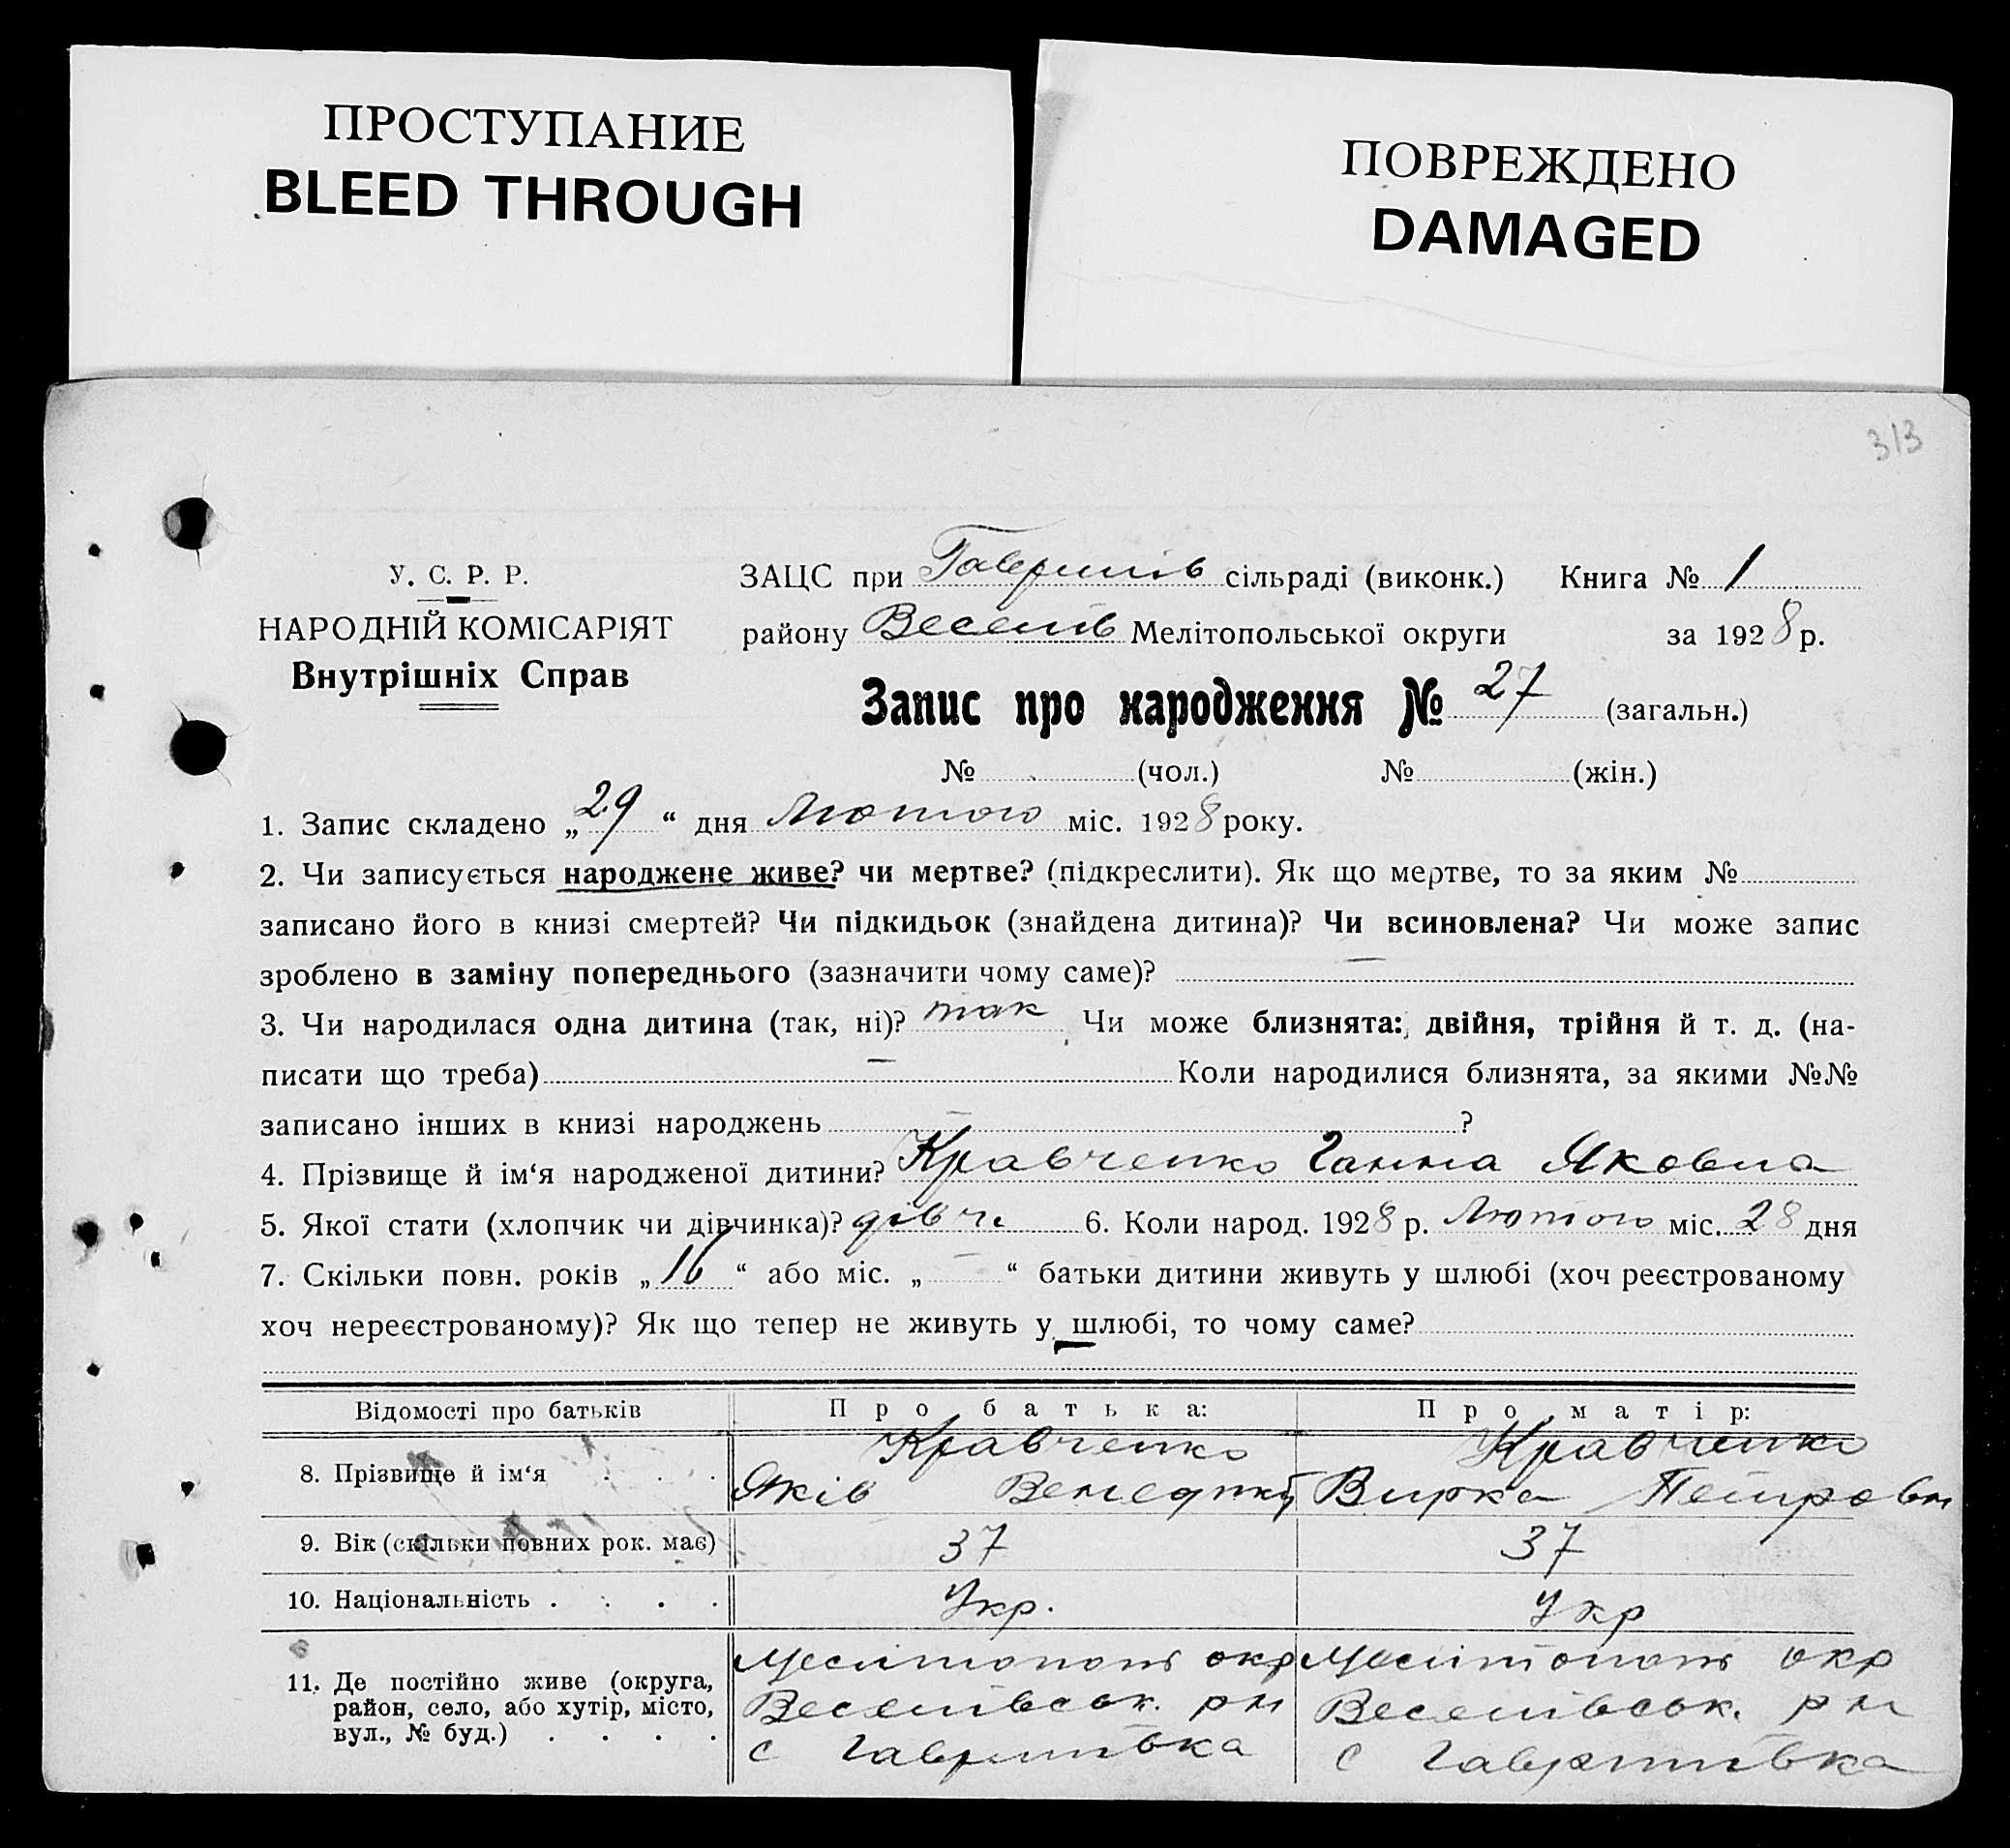 ПРОСТУПАНИЕ
BLEED THROUGH
ПОВРЕЖДЕНО
DAMAGED
313
У. С. Р. Р.
НАРОДНІЙ КОМІСАРІЯТ
Внутрішніх Справ
ЗАЦС при Гаврилів сільраді (виконк.) Книга № 1
району Веселів Мелітопольської округи за 1928 р.
Запис про народження № 27 (загальн.)
№ (чол.) № (жін.)
1. Запис складено „29“ дня Лютого міс. 1928 року.
2. Чи записується народжене живе? чи мертве? (підкреслити). Як що мертве, то за яким №
записано його в книзі смертей? Чи підкидьок (знайдена дитина)? Чи всиновлена? Чи може запис
зроблено в заміну попереднього (зазначити чому саме)? —
3. Чи народилася одна дитина (так, ні)? так Чи може близнята: двійня, трійня й т. д. (на-
писати що треба) — Коли народилися близнята, за якими №№
записано інших в книзі народжень — ?
4. Прізвище й ім‘я народженої дитини? Кравченко Ганна Яковна
5. Якої стати (хлопчик чи дівчинка)? дівч. 6. Коли народ. 1928 р. Лютого міс. 28 дня
7. Скільки повн. років „16“ або міс. „—“ батьки дитини живуть у шлюбі (хоч реєстрованому
хоч нереєстрованому)? Як що тепер не живуть у шлюбі, то чому саме?
Відомості про батьків Про батька: Про матір:
Кравченко Кравченко
8. Прізвище й ім‘я . . . Яків Венедикт Вирка Петровн
9. Вік (скільки повних рок. має) 37 37
10. Національність . . . . Укр. Укр
11. Де постійно живе (округа, район, село, або хутір, місто, вул., № буд.) . . . .
Мелітополь окр
Веселівськ. рн
с Гаврилівка
Мелітополь окр
Веселівськ. рн
с Гаврилівка